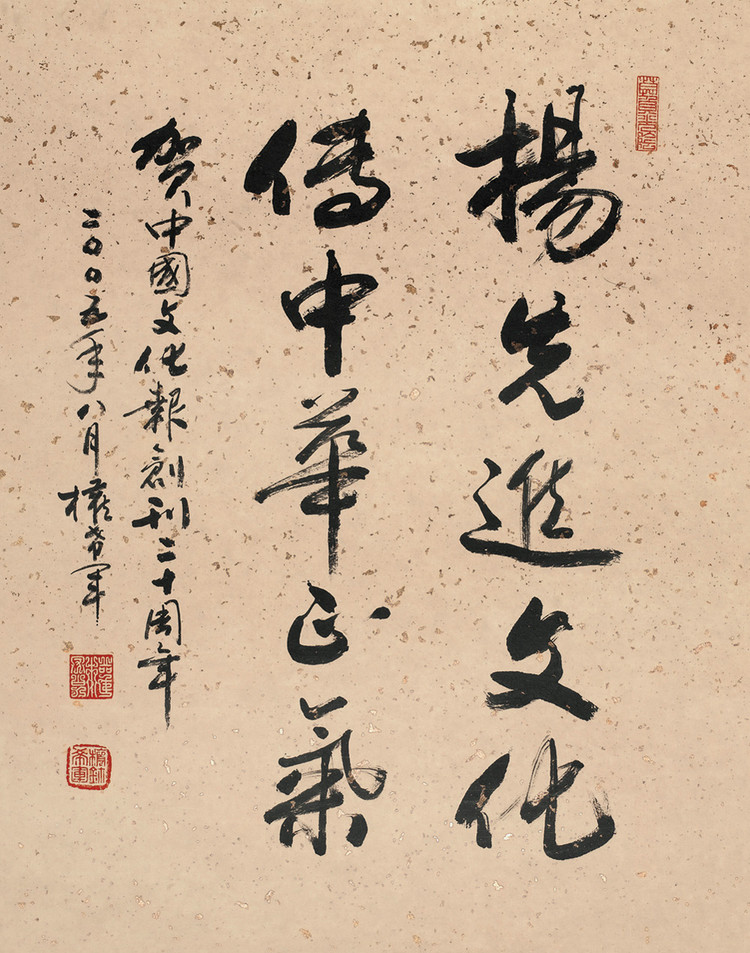 揚先進文化
傳中華正氣
賀中國文化報創刊二十周年
二〇〇五年八月權希軍